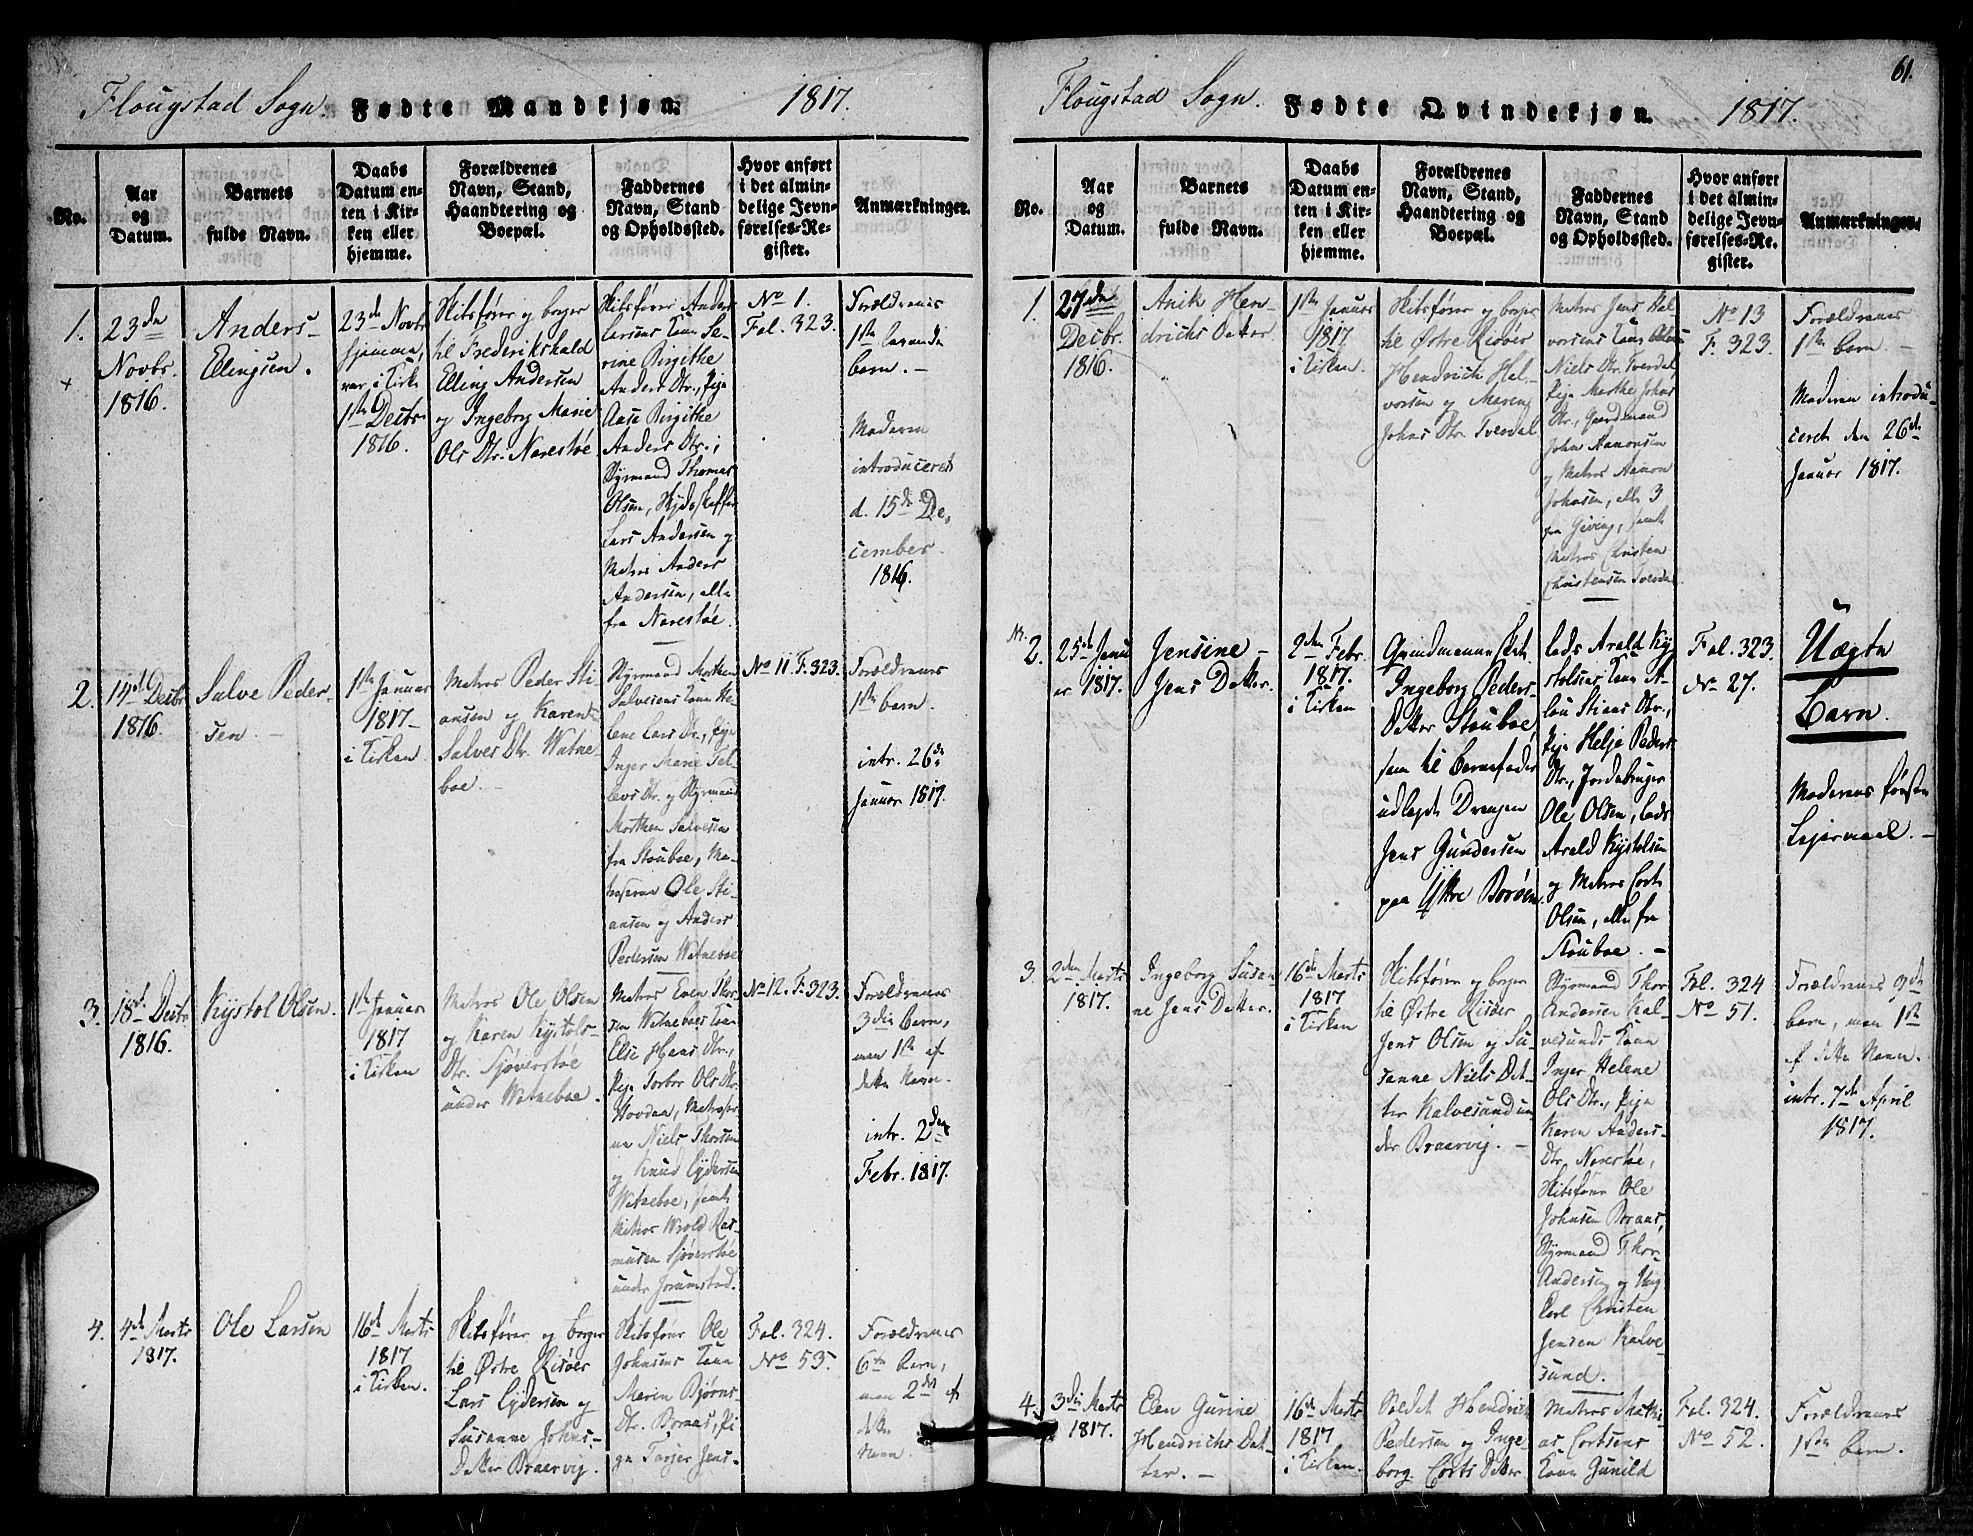 Flougstad Sogn. Fødte Mandkjøn. 1817.
No.
Aar
og
Datum.
Barnets
fulde Navn.
Daabs
Datum en-
ten i Kir-
ken eller
hjemme.
Forældrenes
Navn, Stand,
Haandtering og
Boepæl.
Faddernes
Navn, Stand
og Opholdssted.
Hvor anført
i det almin-
delige Jevn-
førelses-Re-
gister.
Anmærkninger.
1.
23de
Novbr.
1816.
Anders
Ellingsen.
23de Novbr
hjemme,
var i Kirken
1ste Decbr
1816.
Skibsfører og borger
til Frederikshald
Elling Andersen
og Ingeborg Marie
Ols Dtr. Narestøe
Skibsfører Anders
Larsens Kone Se-
rine Birgithe
Anders Dtr., Pige
Aase Birgithe
Anders Dtr.;
Styrmand Thomas
Olsen,
Lars Andersen og
Matros Anders
Andersen, alle
fra Narestøe.
No 1.
Fol. 323.
Forældrenes
1ste levende
barn. -
Moderen
introduceret
d. 15de De-
cember.
1816.
2.
14de Decbr
1816.
Salve Peder-
sen. -
1ste Januar
1817 -
i Kirken
Matros Peder Sti-
ansen og Karen
Salves Dtr. Watne-
boe. -
Styrmand Morthen
Salvesens Kone He-
lene Lars Dtr., Pige
Inger Marie Tel-
levs Dtr. og Styrmand
Morthen Salvesen
fra Stouboe, Ma-
troserne Ole Sti-
ansen og Anders
Pedersen Watneboe
No 11. F. 323.
Forældrenes
1ste barn.
intr. 26de
Januar 1817.
3.
18de Decbr
1816.
Kystol Olsen.
1ste Januar
1817
i Kirken
Matros Ole Olsen
og Karen Kystols-
Dtr. Sjøverstøe
under Watneboe.
Matros Even Thor-
sen Watneboes Kone
Else Hans Dtr.,
Pige Torbor Ols Dtr.
Hovden, Matroser-
ne Niels Thorsen
og Knud Eydersen
Watneboe, samt
Matros Wrold Ras-
musen Sjøverstøe
under Jorumstad.
No 12. F. 323.
Forældrenes
3die Barn,
men 1ste af
dette Navn.
intr. 2den
Febr. 1817.
4.
4de Marts
1817.
Ole Larsen
16de Marts
1817
i Kirken.
Skibsfører og borger
til Østre Risøer
Lars Eydersen og
Susanne Johns-
Datter Braarvig.
Skibsfører Ole
Johnsens Kone
Maren Bjørns
Dtr. Boraas, Pi-
ge Tarjer Jens-
Fol. 324.
No 53.
Forældrenes
6te barn,
men 2det af
dette
Navn
61.
Flougstad Sogn. Fødte Qvindekjøn. 1817.
No.
Aar
og
Datum.
Barnets
fulde Navn.
Daabs
Datum en-
ten i Kir-
ken eller
hjemme.
Forældrenes
Navn, Stand,
Haandtering og
Boepæl.
Faddernes
Navn, Stand
og Opholdssted.
Hvor anført
i det almin-
delige Jevn-
førelses-Re-
gister.
Anmærkninger.
1.
27de
Decbr.
1816.
Anik Hen-
drichs Datter
1ste Januar
1817
i Kirken.
Skibsfører og borger
til Østre Risøer
Hendrich Hal-
vorsen og Maren
Johns Dtr. Tverdal
Matros Jens Hal-
vorsens Kone
Niels Dtr. Tverdal,
Pige Marthe Johns
Dtr., Gaardmand
John Aanonsen
og Matros Aanon
Johnsen, alle 3
fra Giving, samt
Matros Christen
Christensen Tverdal
No 13
F. 323.
Forældrenes
1ste barn. -
Moderen introdu-
ceret den 26de
Januar 1817.
No. 2.
25de Janu
ar 1817.
Jensine -
Jens Datter.
2den Febr.
1817.
i Kirken
Ingeborg Peders-
Datter Stouboe,
som til Barnefader
udlagde Drengen
Jens Gundersen
paa Ytre Borøen.
Lods Arald Ky-
stolsens Kone A-
lou Stians Dtr.,
Pige Helje Peders-
Dtr., Jordebruger
Ole Olsen, Lods
Arald Kystolsen
og Matros Cort
Olsen, alle fra
Stouboe. -
Fol. 323.
No 27.
Uægte
Barn.
Moderens første
Lejermaal. -
3.
2den Marts
1817.
Ingeborg Susan-
ne Jens Datter.
16de Marts
1817
i Kirken
Skibsfører og borger
til Østre Risøer
Jens Olsen og Su-
sanne Niels Dat-
ter Kalvesund un-
der Braarvig. -
Styrmand Thor
Andersen Kal-
vesunds Kone
Inger Helene
Ols Dtr., Pige
Karen Anders-
Dtr. Narestøe,
Skibsfører Ole
Johnsen Boraas,
Styrmand Thor
Andersen og Ung
Carl Christen
Jensen Kalve-
sund.
Fol. 324
No 51.
Forældrenes 9de
barn, men 1ste
af dette Navn.
intr. 7de April
1817.
4.
3die Marts
1817.
Elen Gurine
Hendrichs Dat-
ter. -
16de Marts
1817
i Kirken.
Soldat Hendrich
Pedersen og Inge-
borg Corts Datter
Matros Mathi-
as Cortsens
Kone Gunild
Fol. 324.
No 52.
Forældrenes
1ste barn.